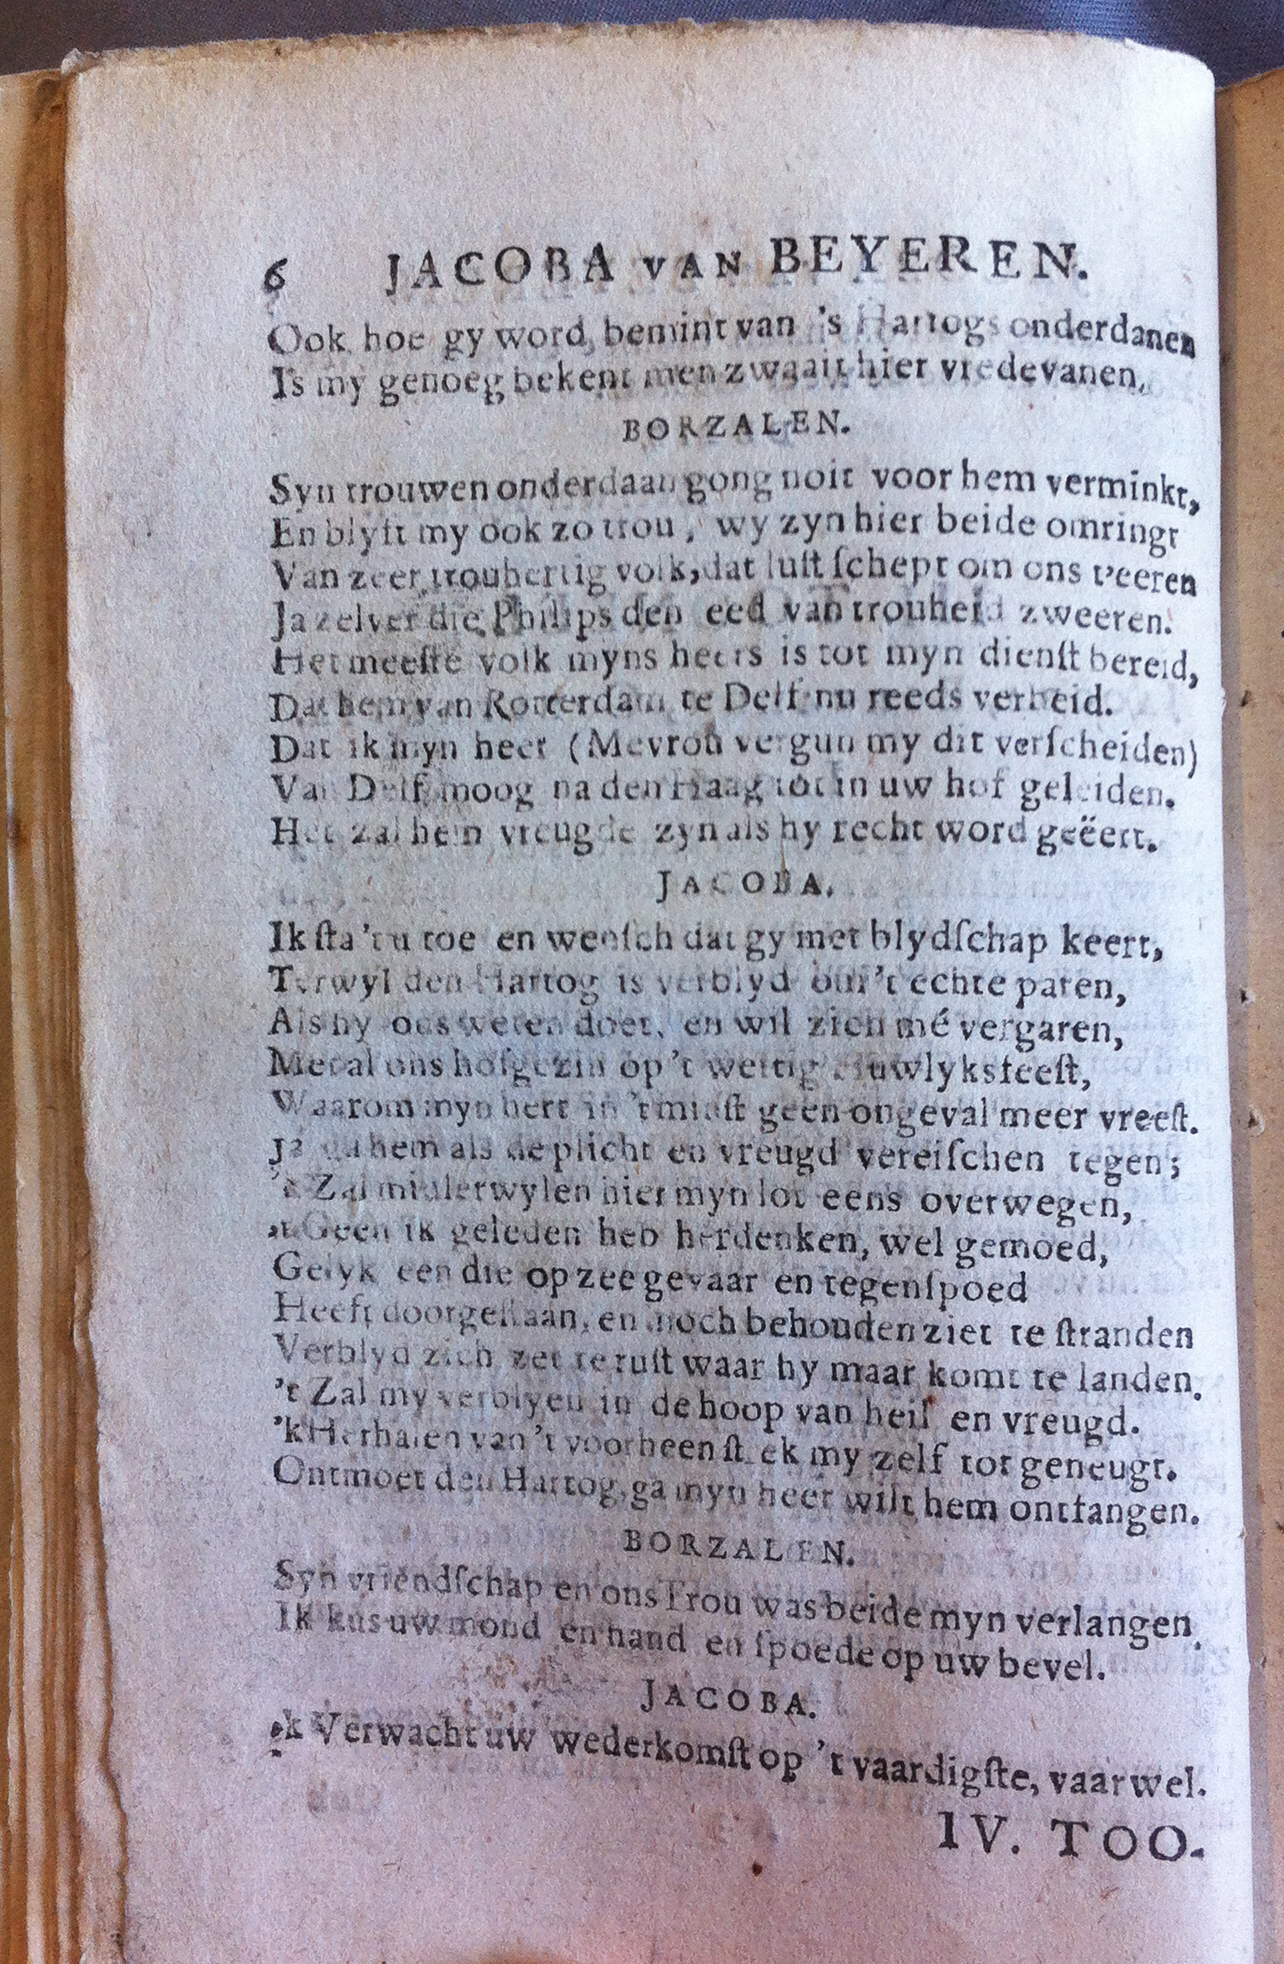 6 JACOBA VAN BEYEREN.
Ook hoe gy word bemint van 's Hartogs onderdanen
Is my genoeg bekent men zwaait hier vredevanen,
BORZALEN.
Syn trouwen onderdaan gong noit voor hem verminkt,
En blyft my ook zo trou, wy zyn hier beide omringt
Van zeer trouhertig volk, dat luſt ſchept om ons t'eeren
Ja zelver die Philips den eed van trouheid zweeren.
Het meeſte volk myns heers is tot myn dienſt bereid,
Dat hem van Rotterdam te Delf nu reeds verbeid.
Dat ik myn heer (Mevrou vergun my dit verſcheiden)
Van Delf moog na den Haag tot in uw hof geleiden.
Het zal hem vreugde zyn als hy recht word geëert.
JACOBA.
Ik ſta 't u toe en wenſch dat gy met blydſchap keert,
Terwyl den Hartog is verblyd om 't echte paren,
Als hy ons weten doet, en wil zich mé vergaren,
Met al ons hofgezin op 't wettig huwlyksfeeſt,
Waarom myn hert in 't minſt geen ongeval meer vreeſt.
Ja ga hem als de plicht en vreugd vereiſchen tegen;
'k Zal midlerwylen hier myn lot eens overwegen,
't Geen ik geleden heb herdenken, wel gemoed,
Gelyk een die op zee gevaar en tegenſpoed
Heeft doorgeſtaan, en noch behouden ziet te ſtranden
Verblyd zich zet te ruſt waar hy maar komt te landen.
't Zal my verblyen in de hoop van heil en vreugd.
'k Herhalen van 't voorheen ſtrek my zelf tot geneugt.
Ontmoet den Hartog, ga myn heer wilt hem ontfangen.
BORZALEN.
Syn vriendſchap en ons Trou was beide myn verlangen,
Ik kus uw mond en hand en ſpoede op uw bevel.
JACOBA.
'k Verwacht uw wederkomſt op 't vaardigſte, vaar wel.
IV. TOO-